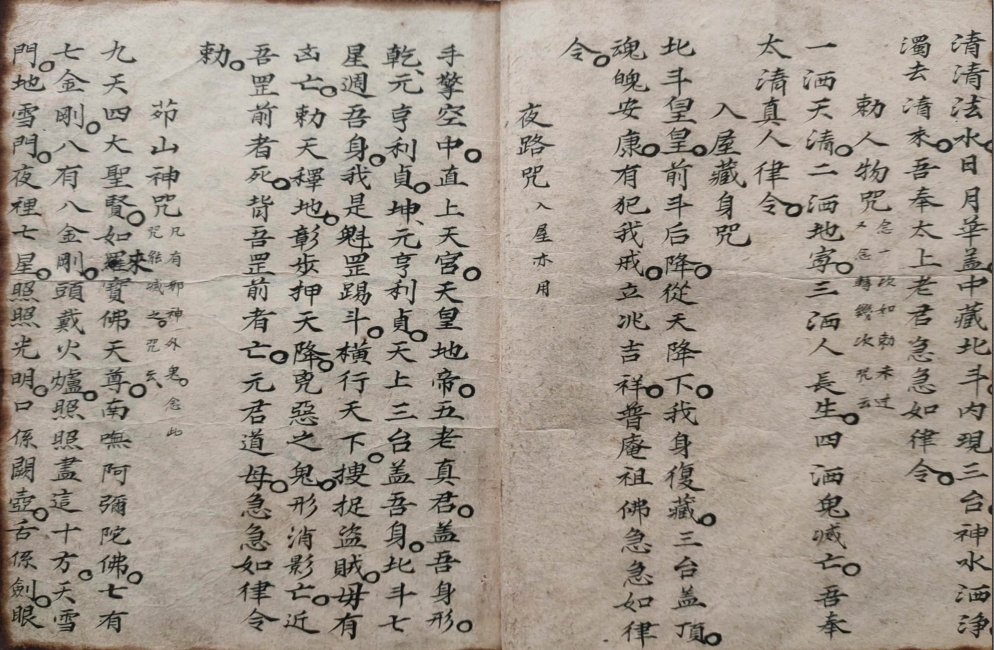 清清法水。日月華盖。中藏北斗。内現三台。神水洒淨
濁去清來。吾奉太上老君急急如律令。
勅人物咒念一次如勅未过又念轉變次咒云
一洒天清。二洒地寧。三洒人長生。四洒鬼滅亡。吾奉
太清真人律令。
入屋藏身咒
北斗皇皇。前斗后降。從天降下。我身復藏。三台盖頂。
魂魄安康。有犯我戒。立兆吉祥。普庵祖佛急急如律
令。
夜路咒入屋亦用
手擎空中。直上天宫。天皇地帝。五老真君。盖吾身形。
乾元亨利貞。坤元亨利貞。天上三台盖吾身。北斗七
星週吾身。我是魁罡踢斗。橫行天下。搜捉盜賊。毋有
凶亡。勅天釋地。彰步押天降。兇惡之鬼。形消影亡。近
吾罡前者死。背吾罡前者亡。元君道母。急急如律令
勅。
茆山神咒凡有邪神外鬼。念此咒能滅之。咒云
九天四大聖賢。如來寶佛天尊。南嘸阿彌陀佛。七有
七金剛。八有八金剛。頭戴火爐。照照盡這十方。天雪
門。地雪門。夜裡七星。照照光明。口係闘壺。舌係劍。眼